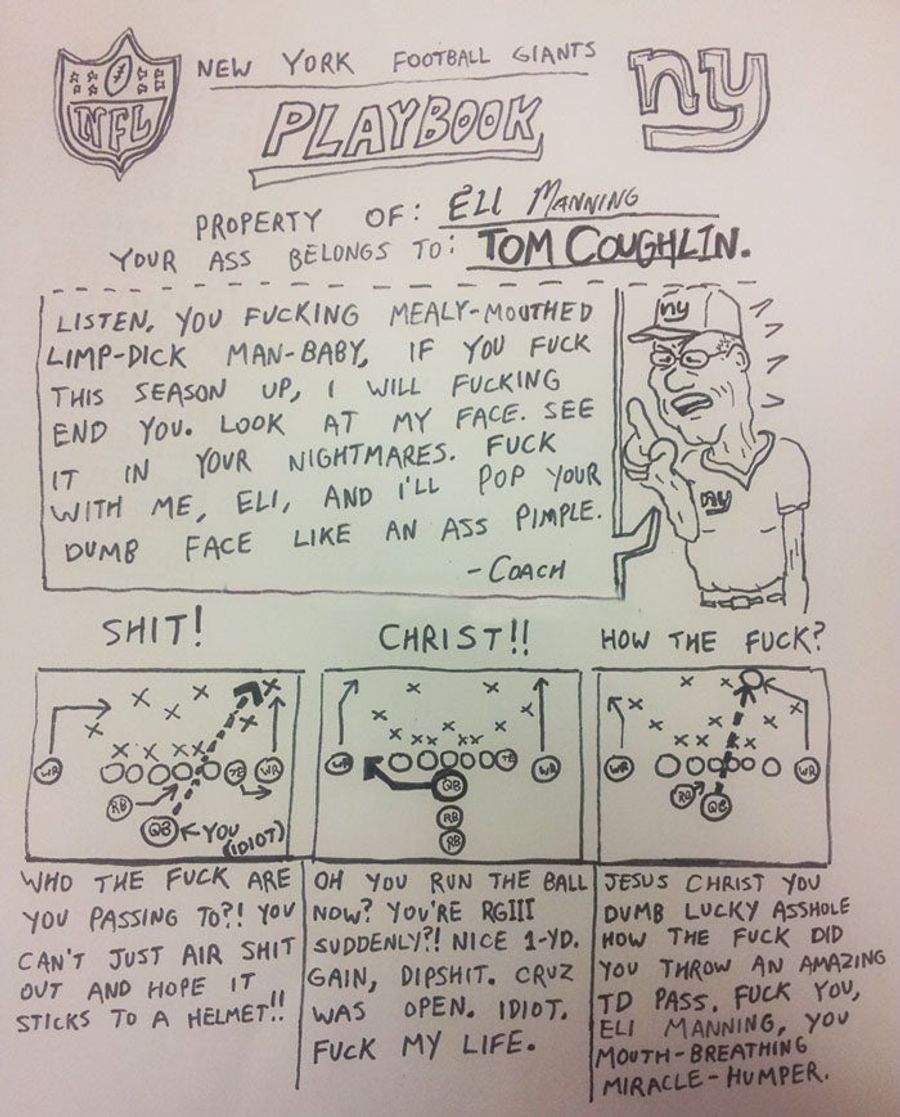 NFL
NEW YORK FOOTBALL GIANTS
ny
PLAYBOOK
PROPERTY OF: ELI MANNING
YOUR ASS BELONGS TO: TOM COUGHLIN.
LISTEN, YOU FUCKING MEALY-MOUTHED
LIMP-DICK MAN-BABY, IF YOU FUCK
THIS SEASON UP, I WILL FUCKING
END YOU. LOOK AT MY FACE. SEE
IT IN YOUR NIGHTMARES. FUCK
WITH ME, ELI, AND I'LL POP YOUR
DUMB FACE LIKE AN ASS PIMPLE.
-COACH
ny
ny
SHIT!
WR TE WR
RB
QB YOU
(IDIOT)
WHO THE FUCK ARE
YOU PASSING TO?! YOU
CAN'T JUST AIR SHIT
OUT AND HOPE IT
STICKS TO A HELMET!!
CHRIST!!
WR TE WR
QB
RB
RB
OH YOU RUN THE BALL
NOW? YOU'RE RGIII
SUDDENLY?! NICE 1-YD.
GAIN, DIPSHIT. CRUZ
WAS OPEN. IDIOT.
FUCK MY LIFE.
HOW THE FUCK?
WR WR
RB QB
JESUS CHRIST YOU
DUMB LUCKY ASSHOLE
HOW THE FUCK DID
YOU THROW AN AMAZING
TD PASS. FUCK YOU,
ELI MANNING, YOU
MOUTH-BREATHING
MIRACLE-HUMPER.